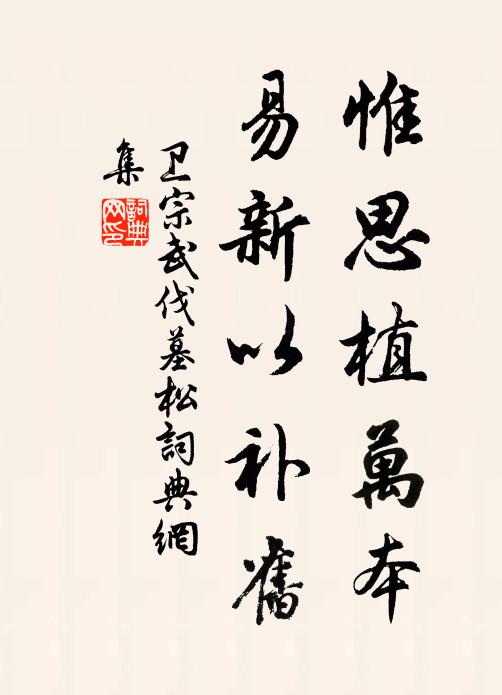 惟思植萬本
易新以补舊
卫宗武伐墓松詞典網
集
詞典
网印